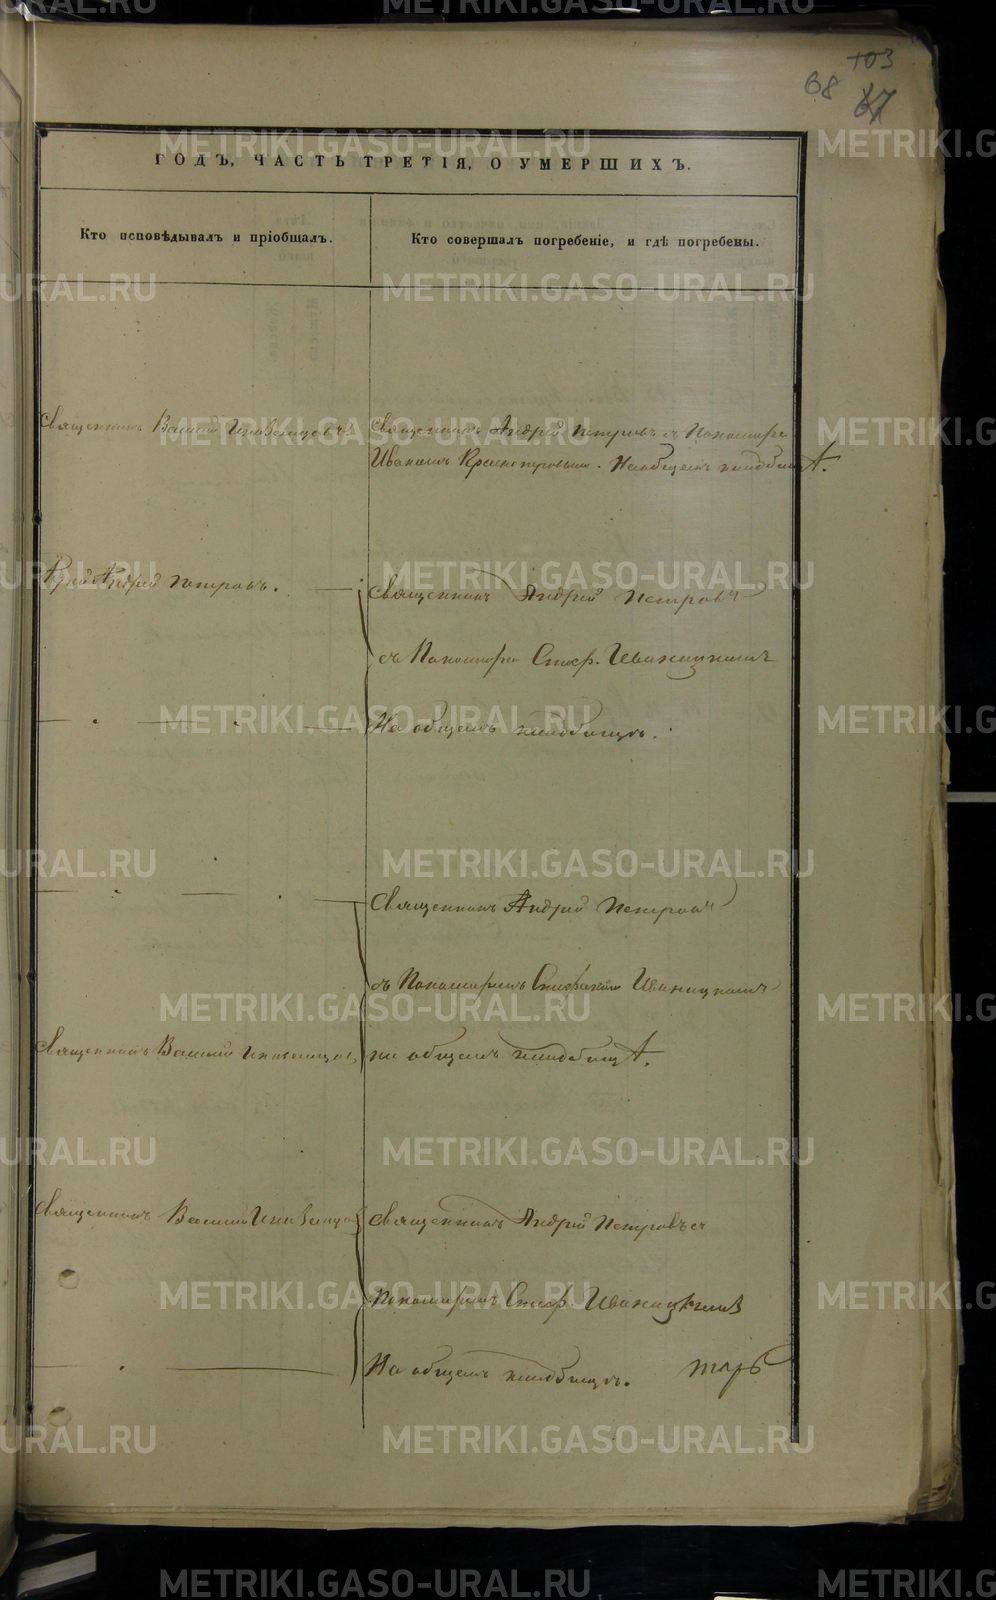 103
68 67
ГОДЪ, ЧАСТЬ ТРЕТІЯ, О УМЕРШИХЪ.
Кто исповѣдывалъ и пріобщалъ.
Кто совершалъ погребеніе, и гдѣ погребены.
Священникъ Василій
Священникъ Андрей Петровъ съ Пономаремъ
Иваномъ На общемъ кладбищѣ.
Андрей Петровъ.
Священникъ Андрей Петровъ
съ Пономаре Стеф. Иваницкимъ
На общемъ кладбищѣ.
Священникъ Андрей Петровъ
съ Пономаремъ Стефаномъ Иваницкимъ
Священникъ Василій
на общемъ кладбищѣ.
Священникъ Василій
Священникъ Андрей Петровъ съ
Пономаремъ Стеф. Иваницкимъ
На общемъ кладбищѣ.
METRIKI.GASO-URAL.RU